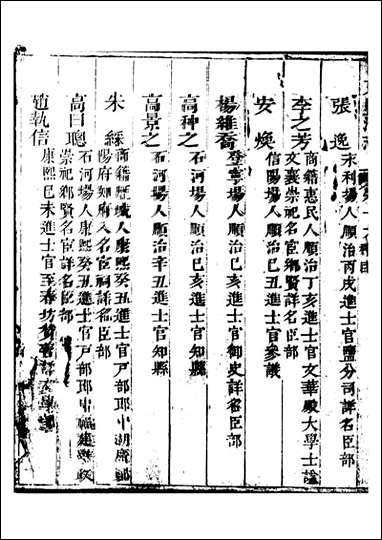 張逸
永利場人順治丙戌進士官鹽分司詳名臣部
李之芳
商籍惠民人順治丁亥進士官文華殿大學士諡
文襄崇祀名宦鄉賢詳名臣部
安煥
信陽場人順治己丑進士官參議
楊維喬
登寧場人順治己亥進士官御史詳名臣部
高种之
石河場人順治己亥進士官知縣
高景之
石河場人順治辛丑進士官知縣
朱綵
商籍歷城人康熙癸丑進士官戶部郎中湖廣
陽府知府入名宦祠詳名臣部
高曰聰
石河場人康熙癸丑進士官戶部郎中福建學政
崇祀鄉賢名宦詳名臣部
趙執信
康熙己未進士官至春坊贊善詳文學部